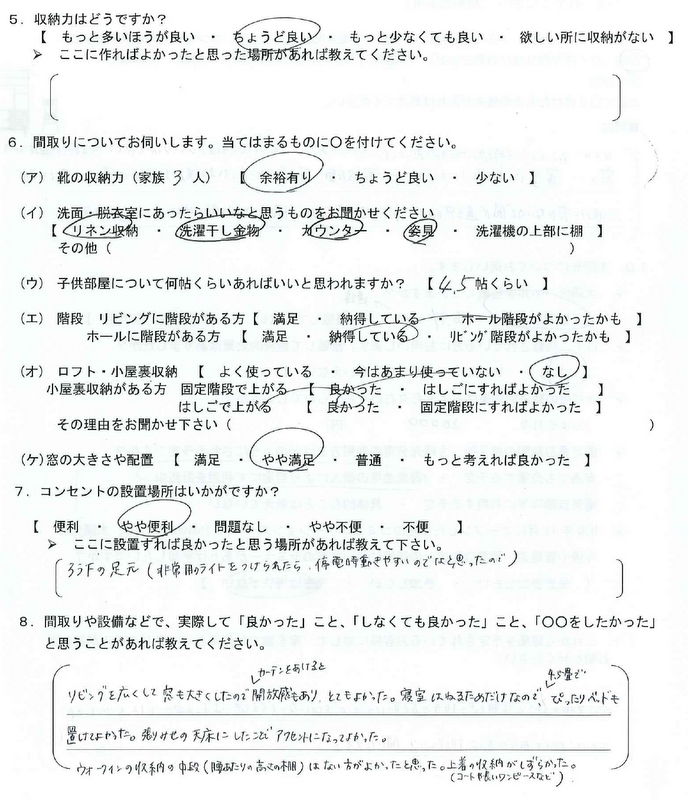 ５．収納力はどうですか？
【　もっと多いほうが良い　・　ちょうど良い　・　もっと少なくても良い　・　欲しい所に収納がない　】
➢　ここに作ればよかったと思った場所があれば教えてください。
６．間取りについてお伺いします。当てはまるものに〇を付けてください。
（ア）靴の収納力（家族 3 人）　【　余裕有り　・　ちょうど良い　・　少ない　】
（イ）洗面・脱衣室にあったらいいなと思うものをお聞かせください
【　リネン収納　・　洗濯干し金物　・　カウンター　・　姿見　・　洗濯機の上部に棚　】
その他（　　　　　　　　　　）
（ウ）子供部屋について何帖くらいあればいいと思われますか？　【 4.5 帖くらい　】
（エ）階段　リビングに階段がある方【　満足　・　納得している　・　ホール階段がよかったかも　】
ホールに階段がある方　【　満足　・　納得している　・　リビング階段がよかったかも　】
（オ）ロフト・小屋裏収納　【　よく使っている　・　今はあまり使っていない　・　なし　】
小屋裏収納がある方　固定階段で上がる　【　良かった　・　はしごにすればよかった　】
はしごで上がる　【　良かった　・　固定階段にすればよかった　】
その理由をお聞かせ下さい（　　　　　　　　　　）
（ケ）窓の大きさや配置　【　満足　・　やや満足　・　普通　・　もっと考えれば良かった　】
７．コンセントの設置場所はいかがですか？
【　便利　・　やや便利　・　問題なし　・　やや不便　・　不便　】
➢　ここに設置すれば良かったと思う場所があれば教えて下さい。
ろう下の足元（非常用のライトをつけられたら、停電時動きやすいのではと思ったので）
８．間取りや設備などで、実際して「良かった」こと、「しなくても良かった」こと、「〇〇をしたかった」
と思うことがあれば教えてください。
カーテンをあけると
4.5畳で
リビングを広くして窓も大きくしたので開放感もあり、とてもよかった。寝室はねるためだけなので、ぴったりベッドも
置けてよかった。張りみせの天床にしたことでアクセントになってよかった。
ウォークインの収納の中段（腰あたりの高さの棚）はない方がよかったと思った。上着の収納がしずらかった。
（コートや長いワンピースなど）